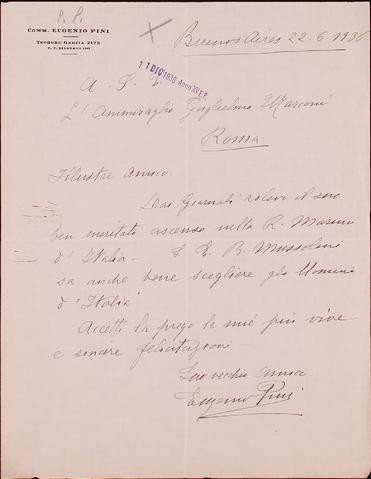 P. P.
COMM. EUGENIO PINI
TEODORO GARCÍA 2173
U. T. BELGRANO
Buenos Aires 22-6-1936
11 DIC 1936 Anno XV E.F.
A. S. E.
L'Ammiraglio Guglielmo Marconi
Roma
Illustre Amico.
Dai Giornali rilevo il suo
ben meritato ascenso nella R. Marina
d'Italia - S. E. B. Mussolini
sa anche bene scegliere gli Uomini
d'Italia
Accetti la prego le mie più vive
e sincere felicitazioni -
Suo vecchio amico
Eugenio Pini